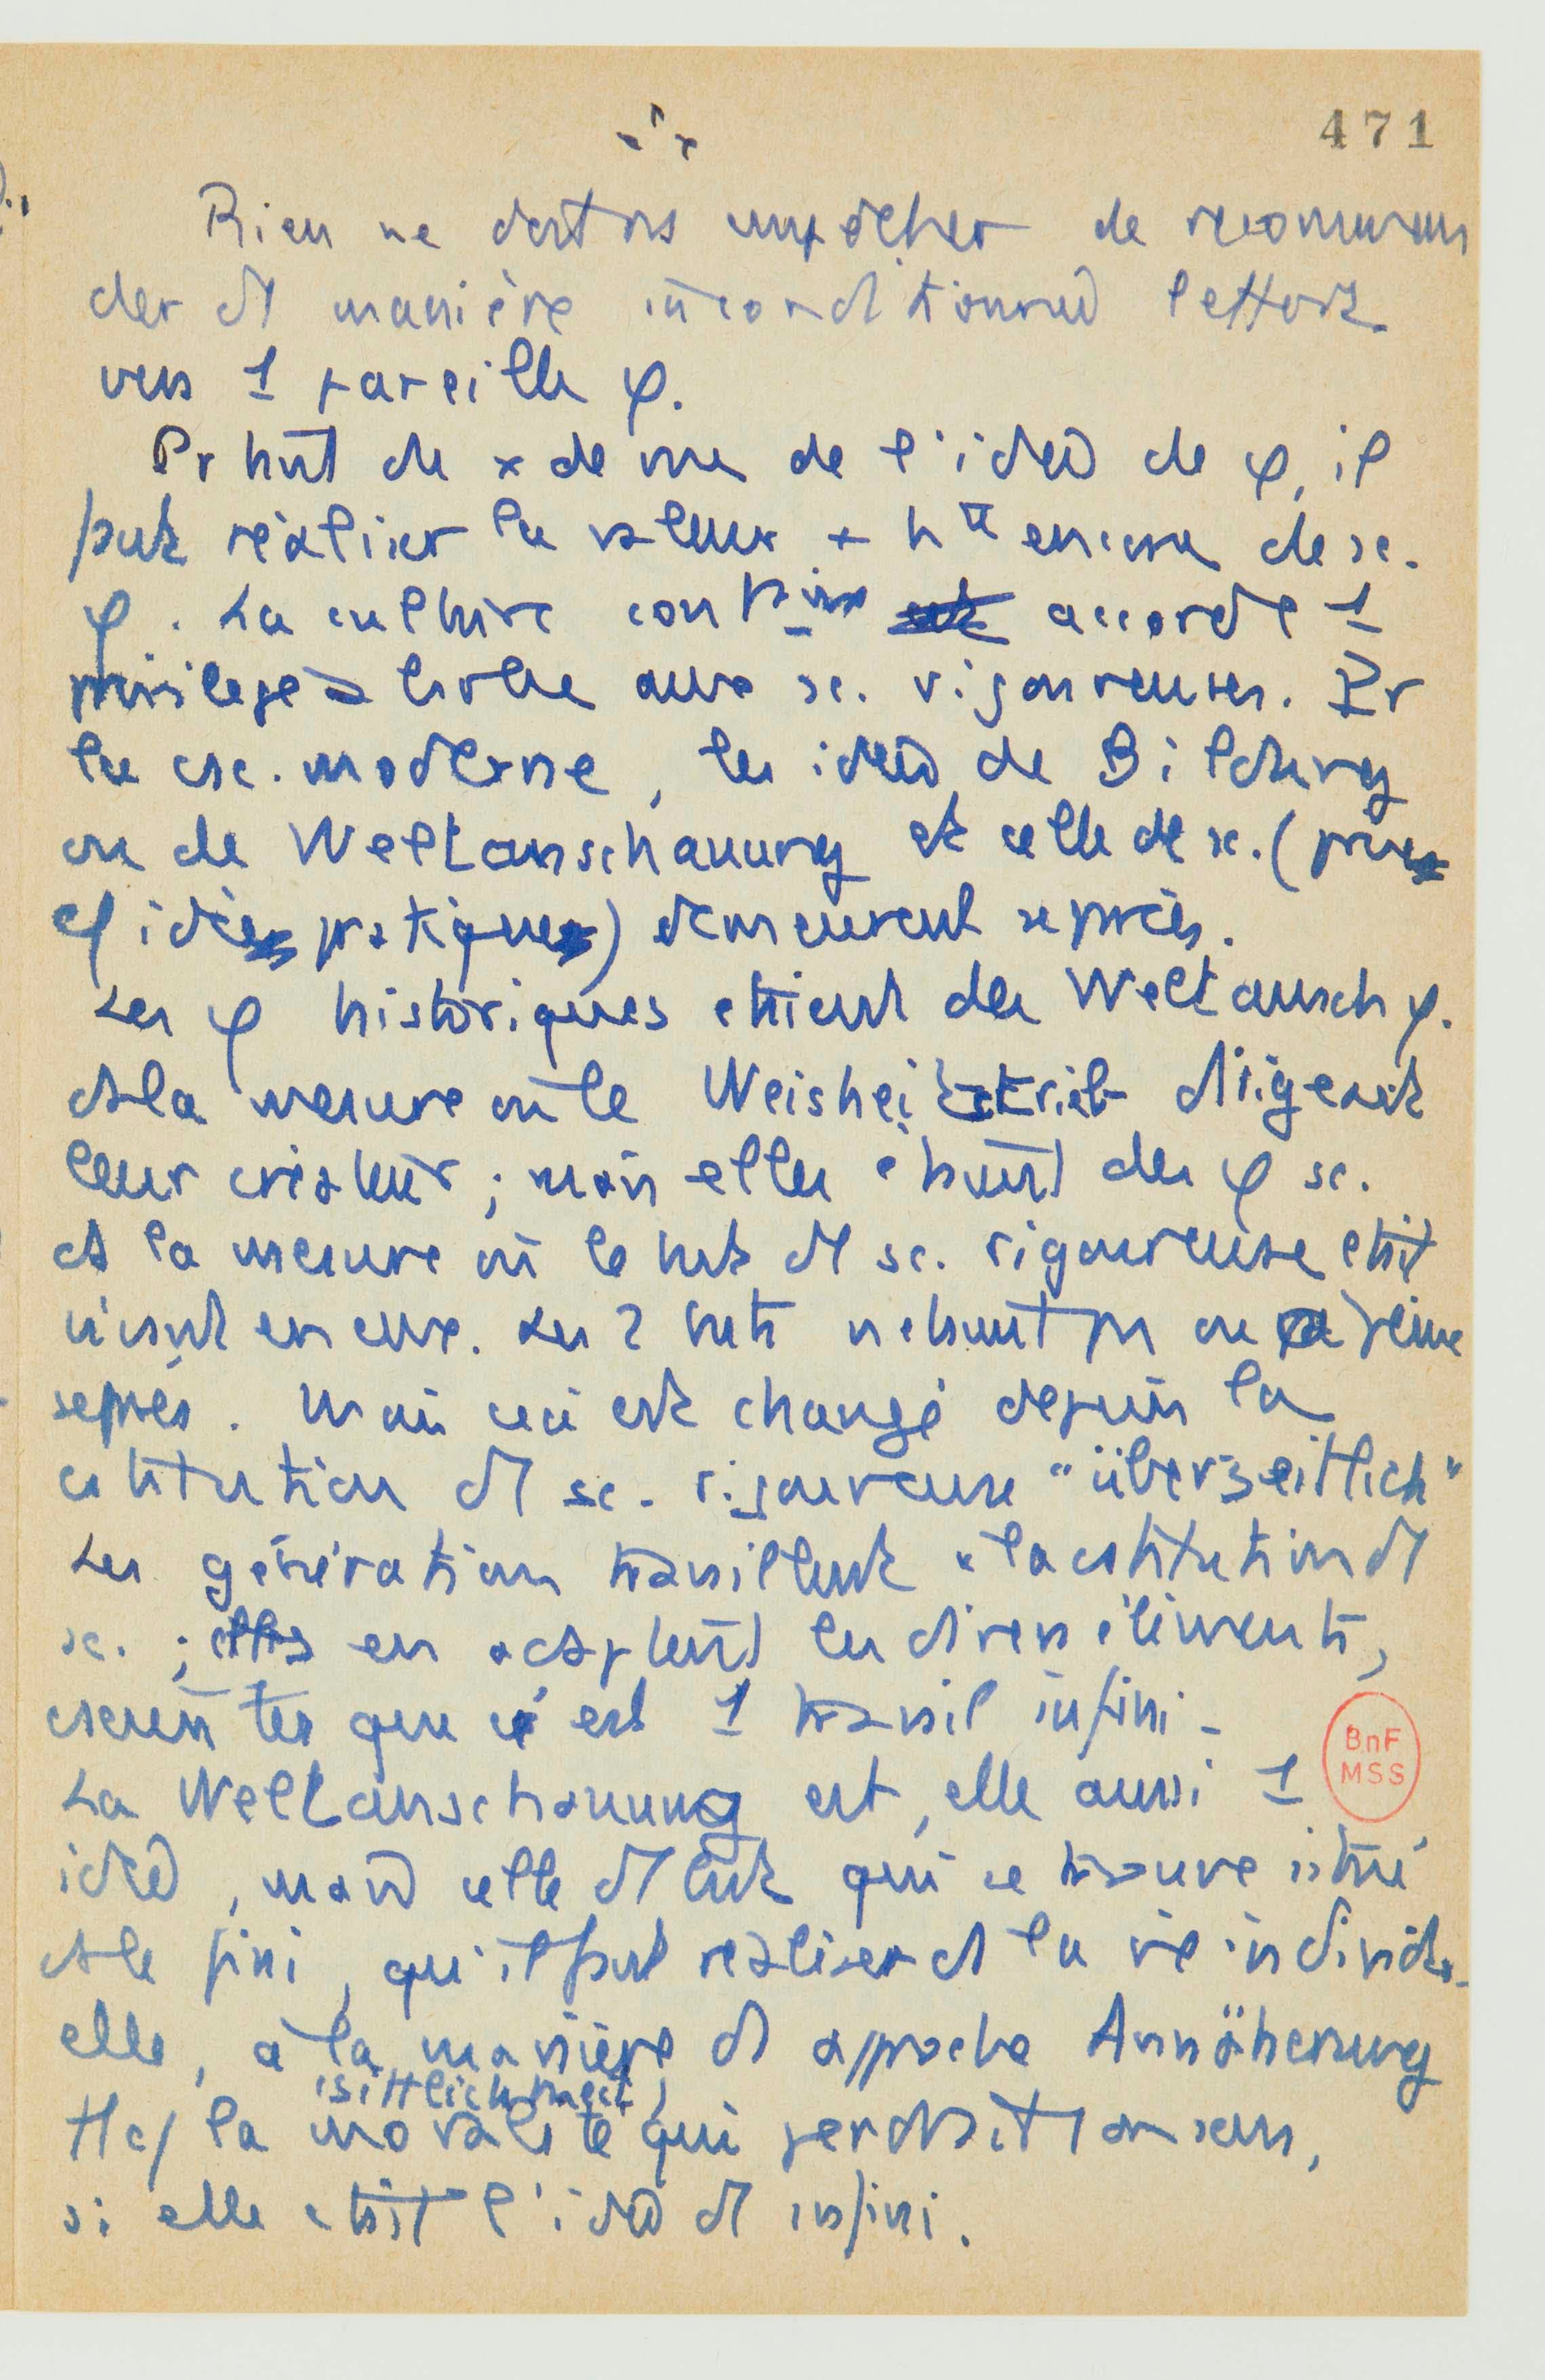 471
Rien ne doit ns empêcher de recomman
der d manière inconditionned l'effort
vers 1 pareille φ.
Pr tant du x de vue de l'idée de φ, il
faut réaliser la valeur + hte encore de sc.
φ. La culture accorde 1
privilège à aux sc. rigoureuses. Pr
la csc. moderne, les idées de Bildung
ou de Weltanschauung et celle de sc. (prise
cf idée pratique) demeurent séprées.
Les φ historiques étaient des Weltansch φ.
ds la mesure où le Weisheitstrieb dirigeait
leur créateur ; mais elles étaient des φ sc.
ds la mesure où le but d sc. rigoureuse était
vivant en eux. Les 2 buts n'étaient pas ou à peine
séprés. Mais ceci est changé depuis la
cstitution d sc. rigoureuse "überzeitlich"
Les générations travaillent à la cstitution d
sc. ; elles en acceptent les divers éléments,
cscientes que c'est 1 travail infini.
La Weltanschauung est, elle aussi 1
idée, mais celle d but qui se trouve situé
ds le fini, qu'il faut réaliser ds la vie individu-
elle, à la manière d approche Annäherung
(Sittlichkeit)
tt cf la moralité qui perdrait son sens,
si elle était l'idée d infini.
BnF
MSS